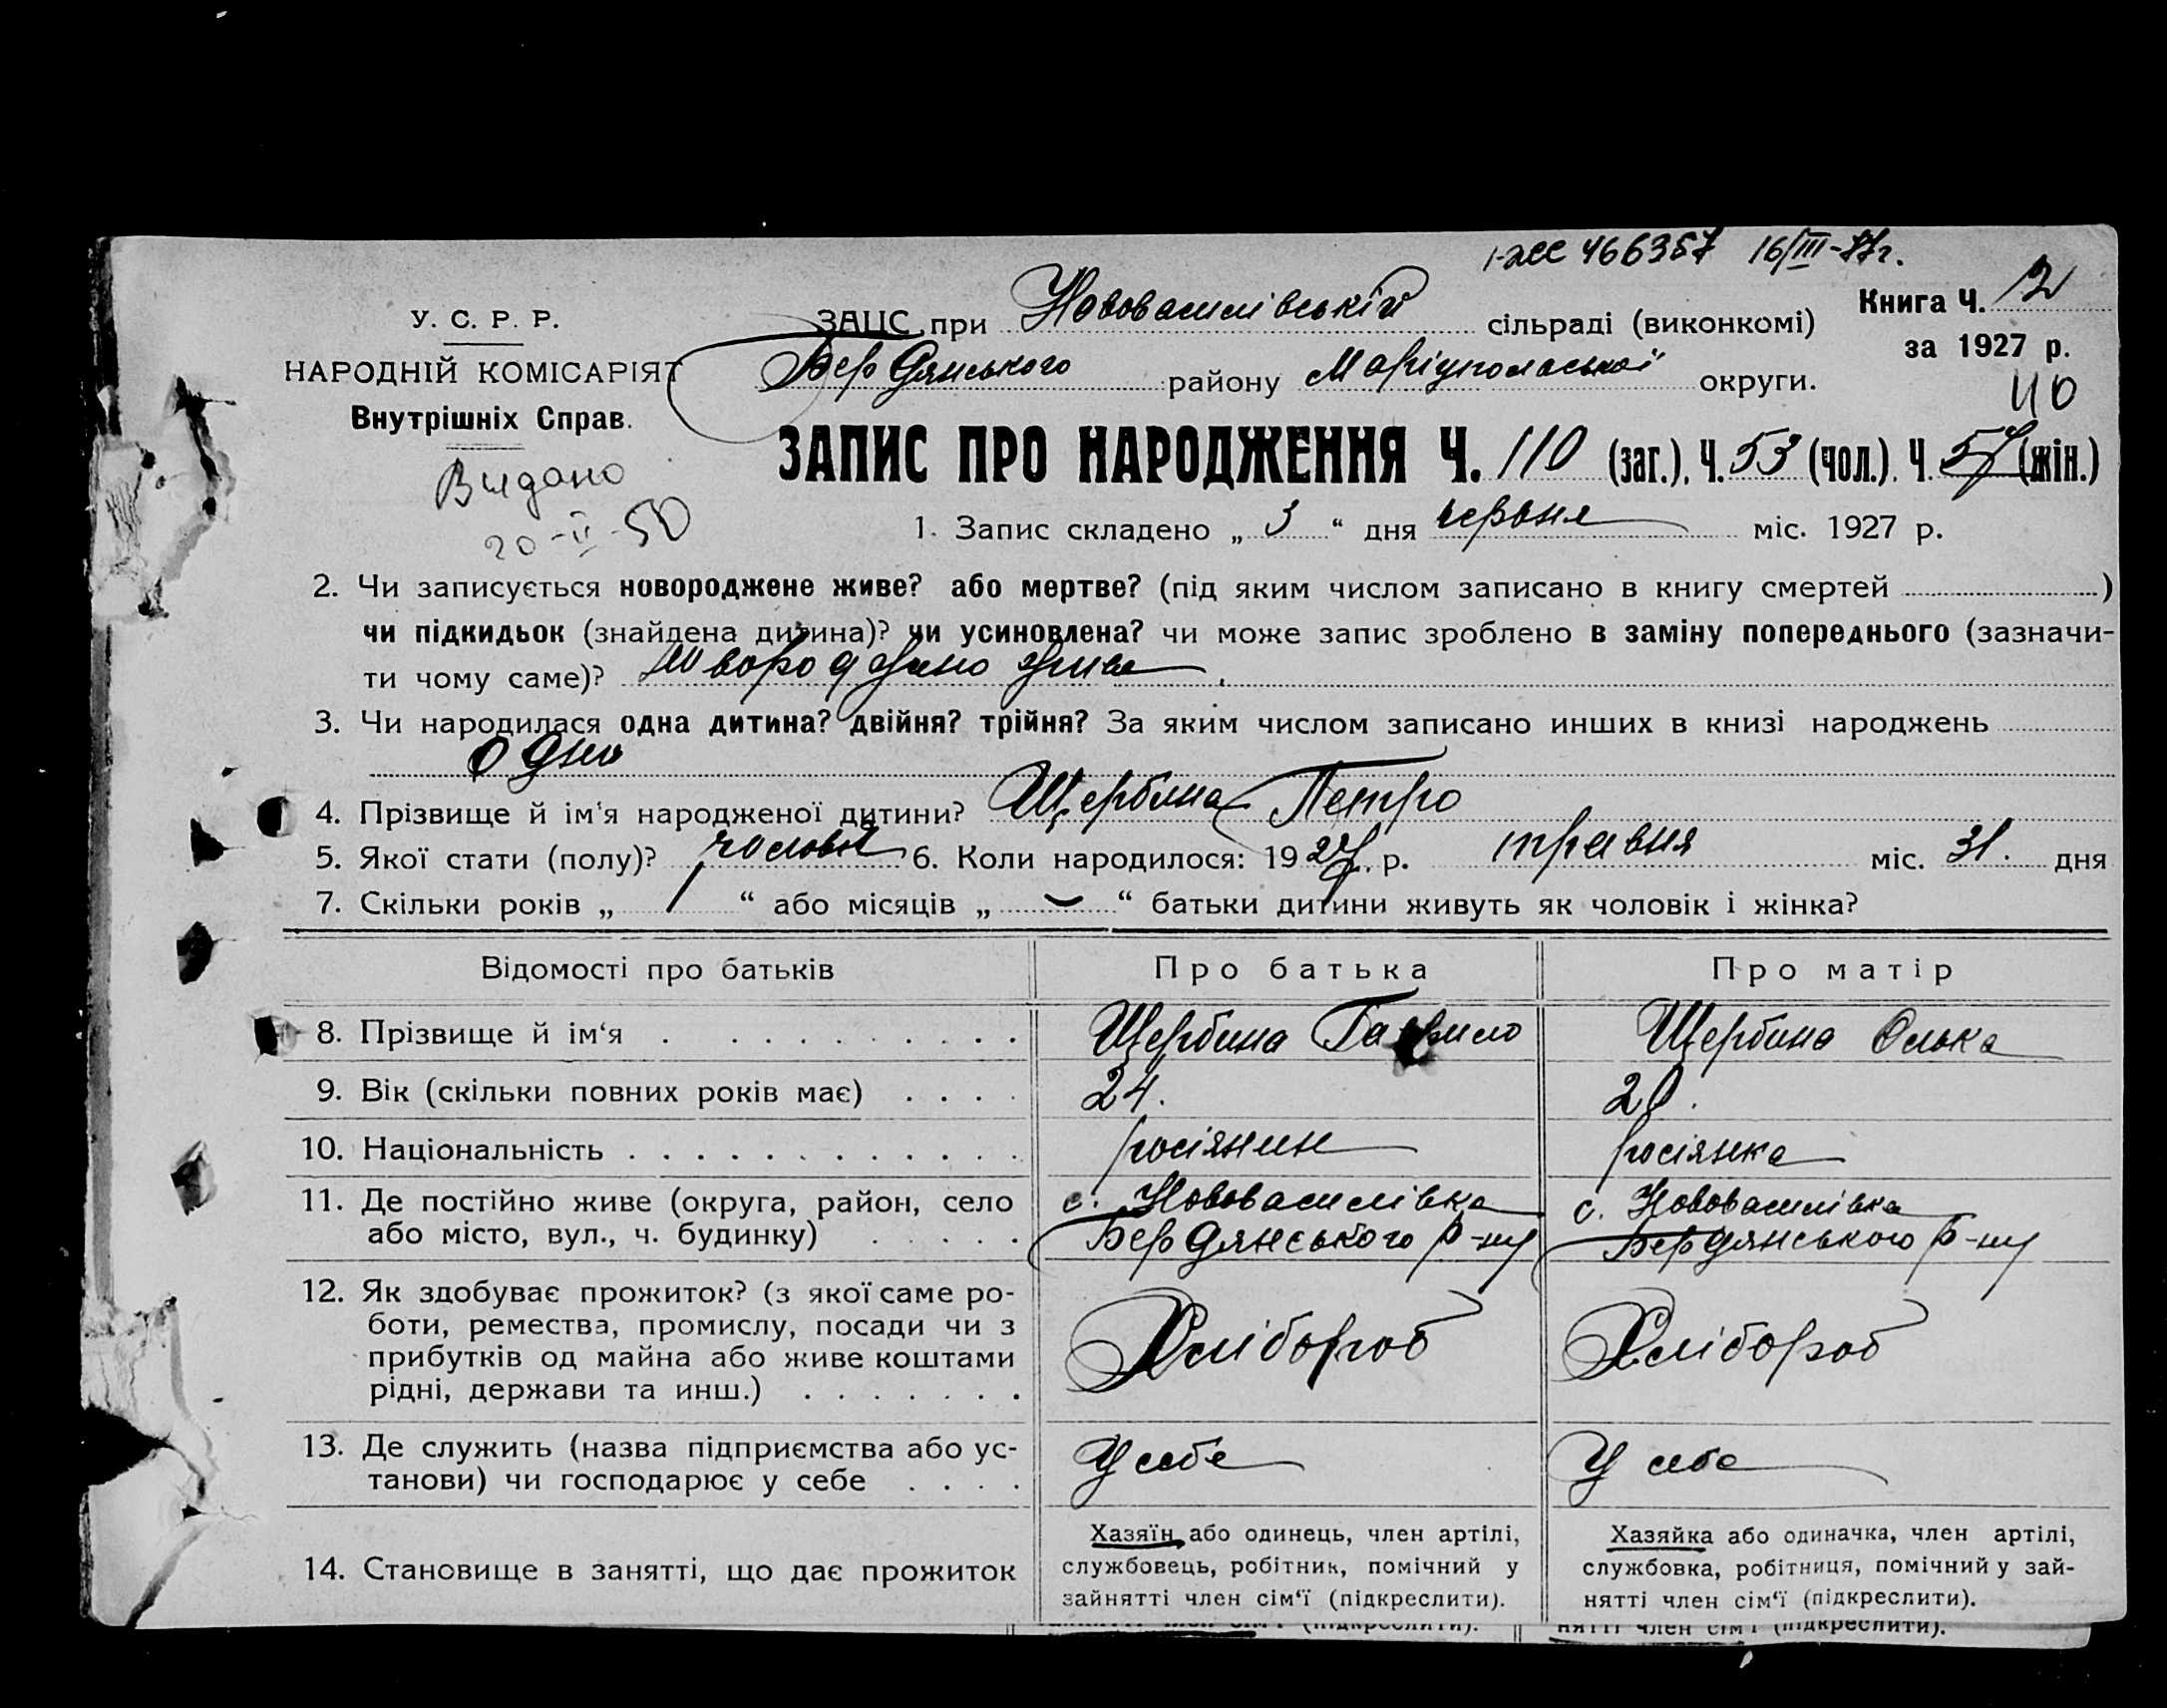 466357 16/III-77г.
У. С. Р. Р.
НАРОДНІЙ КОМІСАРІЯТ
Внутрішніх Справ.
Видано
20-II-50
ЗАЦС при Нововасилівській сільраді (виконкомі)
Бердянського району Маріупольської округи.
Книга Ч. 2
за 1927 р.
110
ЗАПИС ПРО НАРОДЖЕННЯ Ч. 110 (заг.), Ч. 53 (чол.). Ч. 57 (жін.)
1. Запис складено „ 3 “ дня червня міс. 1927 р.
2. Чи записується новороджене живе? або мертве? (під яким числом записано в книгу смертей )
чи підкидьок (знайдена дитина)? чи усиновлена? чи може запис зроблено в заміну попереднього (зазначи-
ти чому саме)? живе
3. Чи народилася одна дитина? двійня? трійня? За яким числом записано инших в книзі народжень
одна
4. Прізвище й ім‘я народженої дитини? Щербина Петро
5. Якої стати (полу)? чоловіч 6. Коли народилося: 1927 р. травня міс. 31. дня
7. Скільки років „ 1 “ або місяців „ – “ батьки дитини живуть як чоловік і жінка?
Відомості про батьків Про батька Про матір
8. Прізвище й ім‘я Щербина Гаврило Щербина Олька
9. Вік (скільки повних років має) 24. 20.
10. Національність росіянин росіянка
11. Де постійно живе (округа, район, село с. Нововасилівка с. Нововасилівка
або місто, вул., ч. будинку) Бердянського р-ну Бердянського р-ну
12. Як здобуває прожиток? (з якої саме ро-
боти, ремества, промислу, посади чи з Хлібороб Хлібороб
прибутків од майна або живе коштами
рідні, держави та инш.)
13. Де служить (назва підприємства або ус- У себе У себе
танови) чи господарює у себе
14. Становище в занятті, що дає прожиток
Хазяїн або одинець, член артілі,
службовець, робітник, помічний у
зайнятті член сім‘ї (підкреслити).
Хазяйка або одиначка, член артілі,
службовка, робітниця, помічний у зай-
нятті член сім‘ї (підкреслити).
(підкреслити).
нятті член сім‘ї (підкреслити).